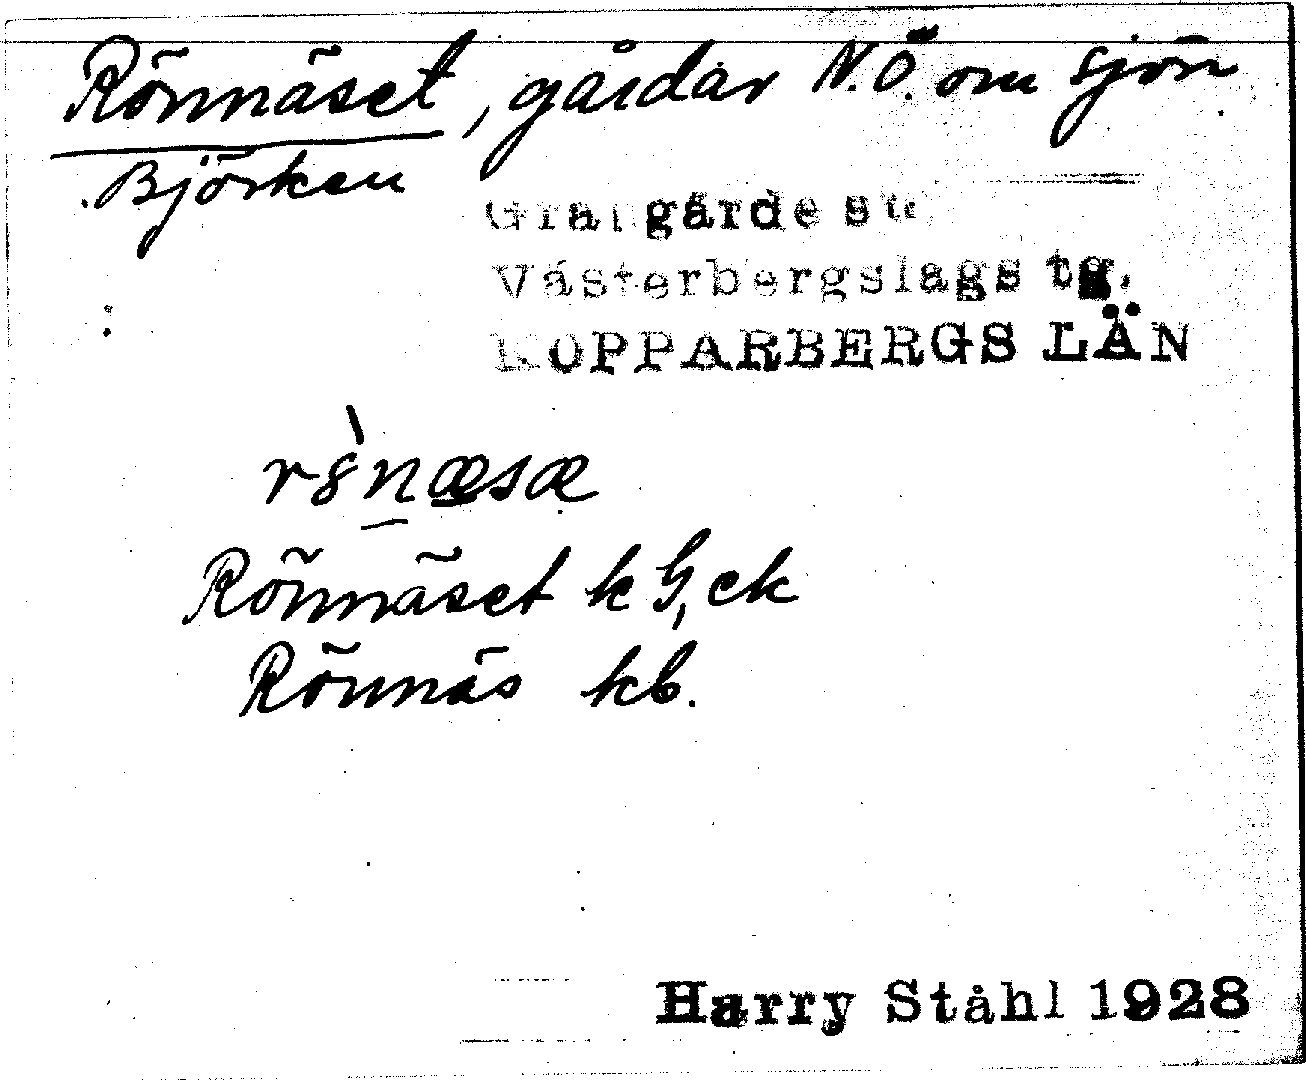 Rönnäset, gårdar N.Ö. om sjön
Björken
Grangärde sn
Västerbergslags tg.
KOPPARBERGS LÄN
Rönnäset k G, ek
Rönnäs kb.
Harry Ståhl 1928